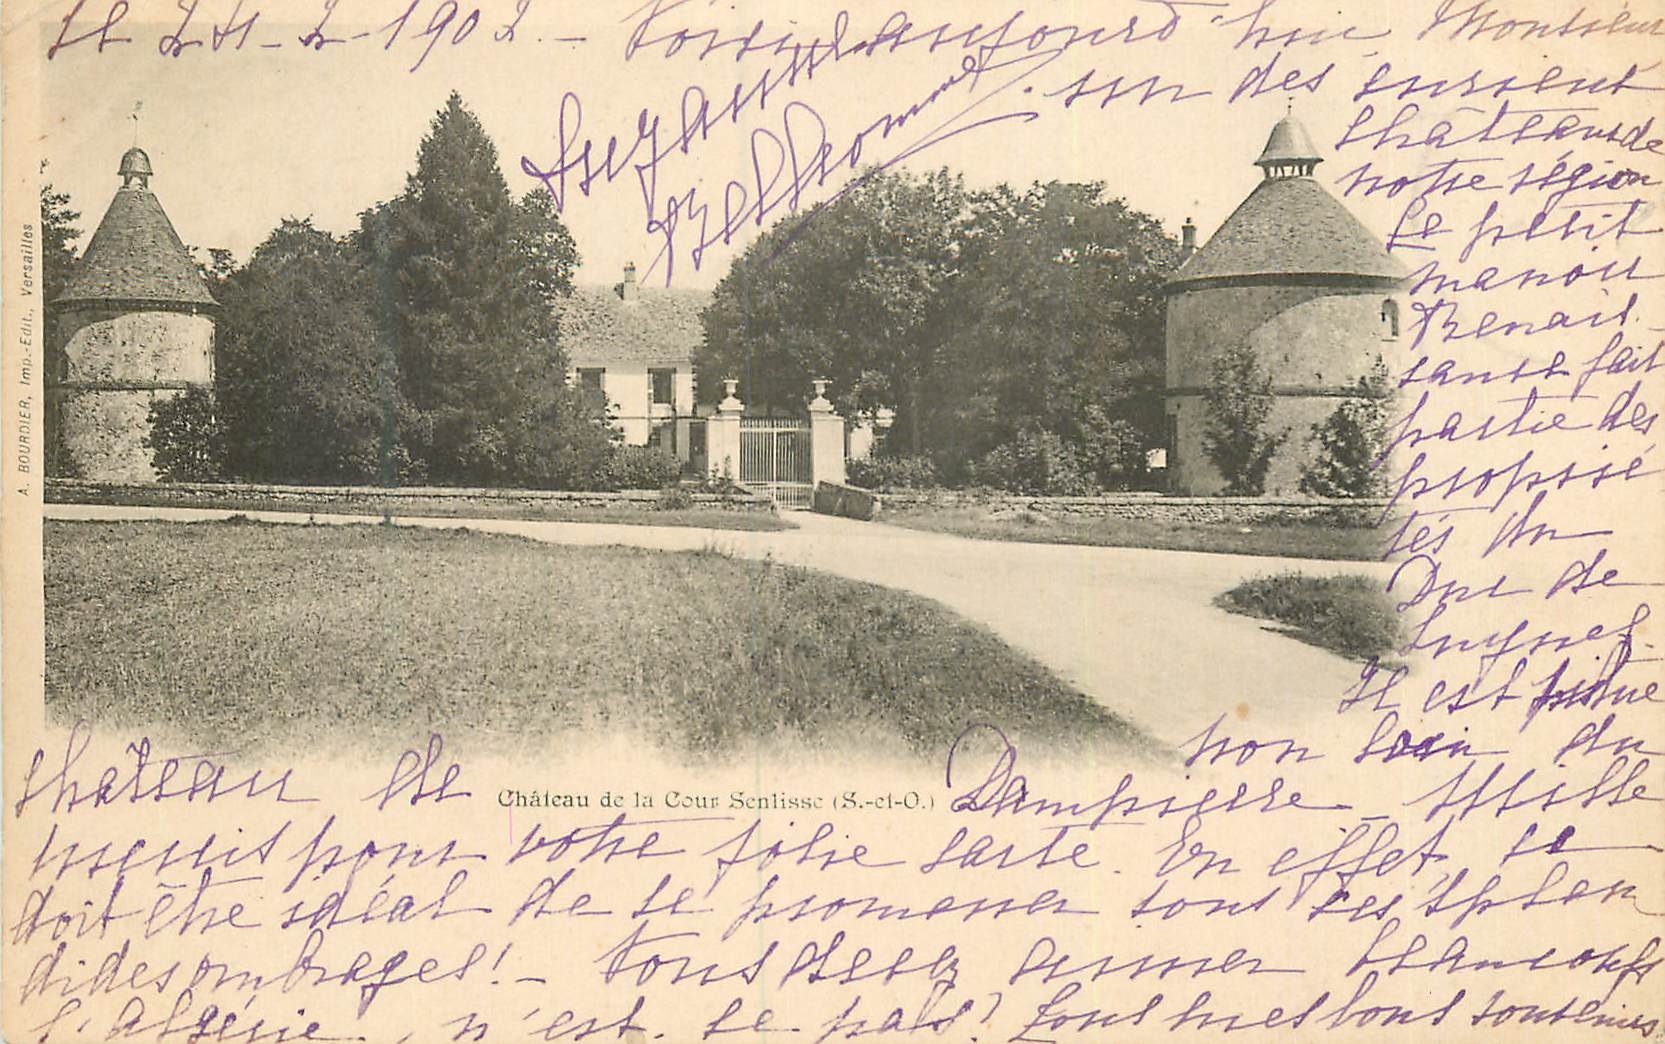 le 24-2-1902. - Voici aujourd'hui, Monsieur
un des anciens
châteaux de
notre région
Le petit
manoir
Renais-
sance fait
partie des
proprié
tés du
Duc de
Luynes.
Il est situé
non loin du
château de Dampierre _ Mille
mercis pour votre jolie carte. En effet, ce
doit être idéal de se promener sous ces splen
dides ombrages! - Vous devez aimer beaucoup
l'Algérie, n'est-ce pas? Tous mes bons souvenirs.
Suzanne
Belhomme
Château de la Cour Senlisse (S.-et-O.)
A. BOURDIER, Imp.-Edit., Versailles